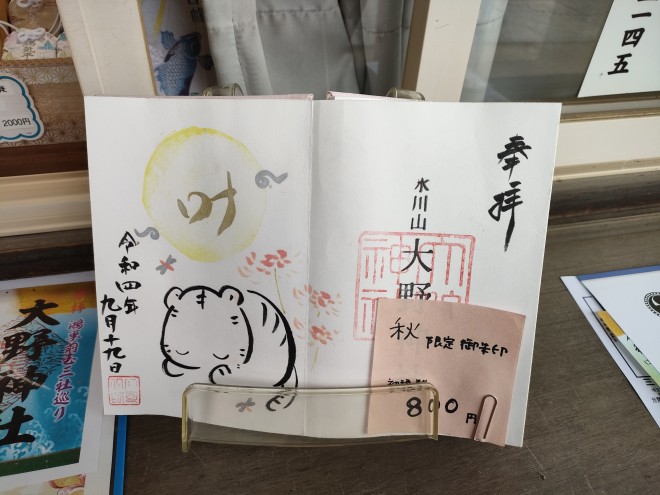 奉拝
水川山
大野
叶
令和四年
九月十九日
秋 限定 御朱印
800円
大野神士
三社巡り
2000円
一四五